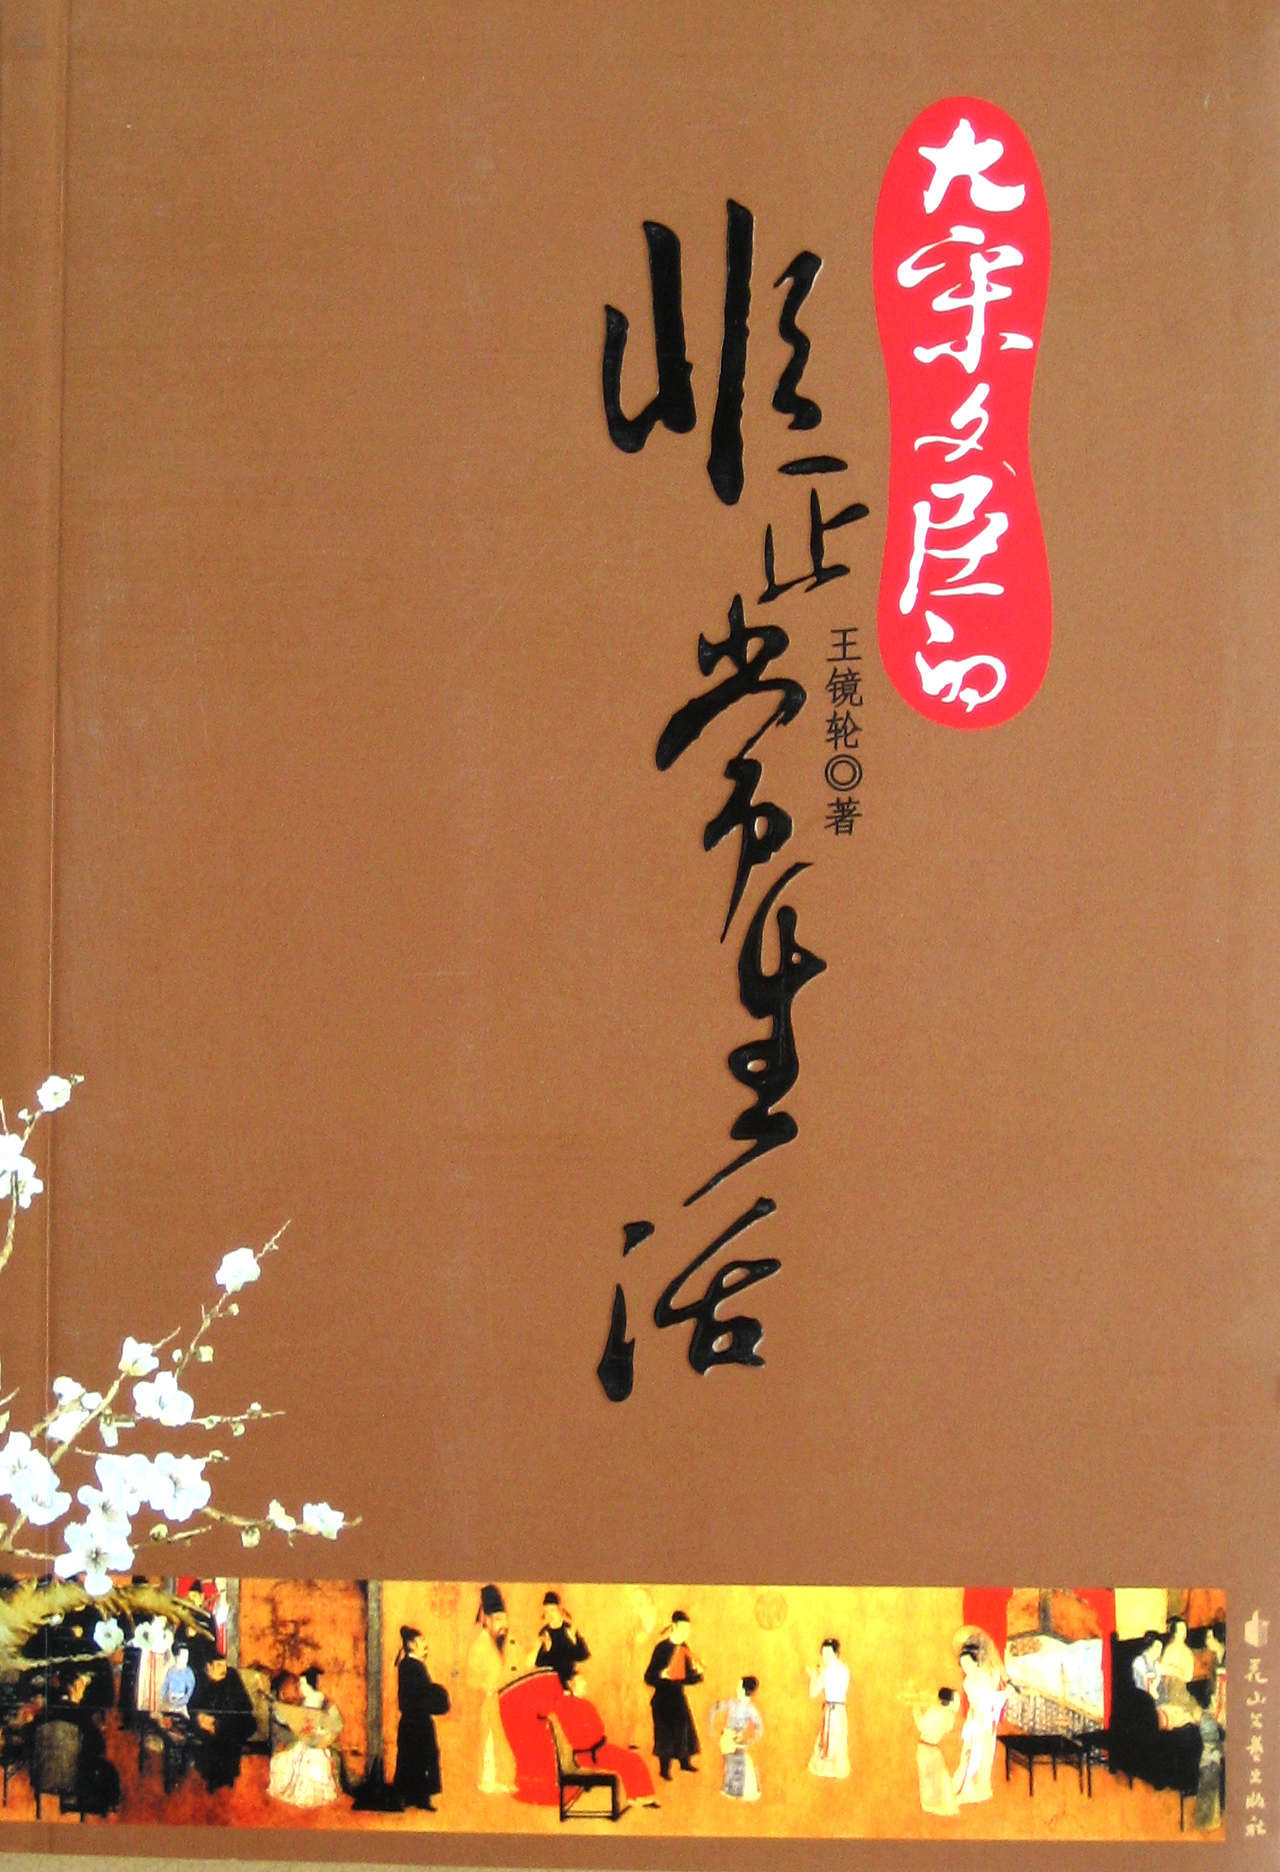 大宋文臣的
非正常生活
王镜轮◎著
花山文藝出版社